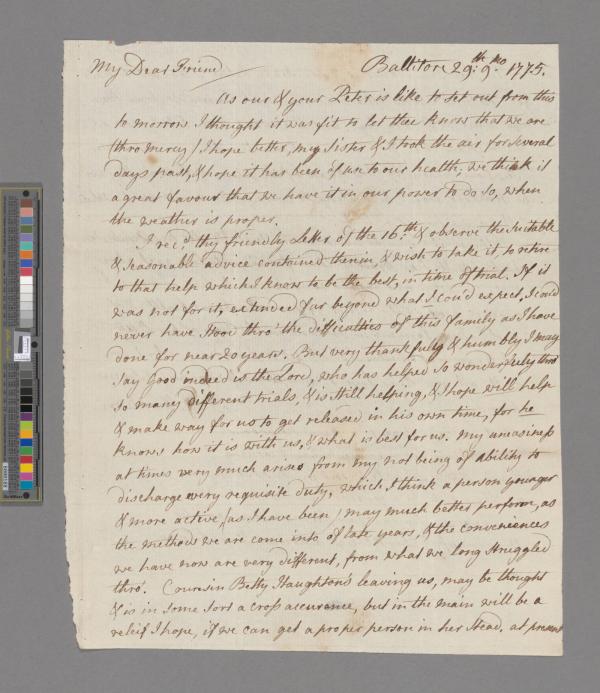 My Dear Friend
Ballitore 29th. 9mo. 1775.
As our & your Peter is like to set out from this
to morrow I thought it was fit to let thee know that we are
(thro mercy) I hope better, my Sister & I took the air for several
days past, & hope it has been of use to our health, we think it
a great favour that we have it in our power to do so, when
the weather is proper.
I rec'd thy friendly Letter of the 16th. & observe the suitable
& seasonable advice contained therein, & wish to take it, to retire
to that help which I know to be the best, in time of trial. If it
was not for it, extended far beyond what I cou'd expect, I could
never have stood thro' the difficulties of this family as I have
done for near 20 years. But very thankfully & humbly I may
say Good indeed is the Lord, who has helped so wonderfully thro'
so many different trials, & is still helping, & I hope will help
& make way for us to get released in his own time, for he
knows how it is with us, & what is best for us. My uneasiness
at times very much arises from my not being of ability to
discharge every requisite duty, which I think a person younger
& more active (as I have been) may much better perform, as
the methods we are come into of late years, & the conveniences
we have now are very different, from what we long struggled
thro'. Cousin Betty Haughton's leaving us, may be thought
& is in some sort a cross accurance, but in the main will be a
releif I hope, if we can get a proper person in her stead. at present